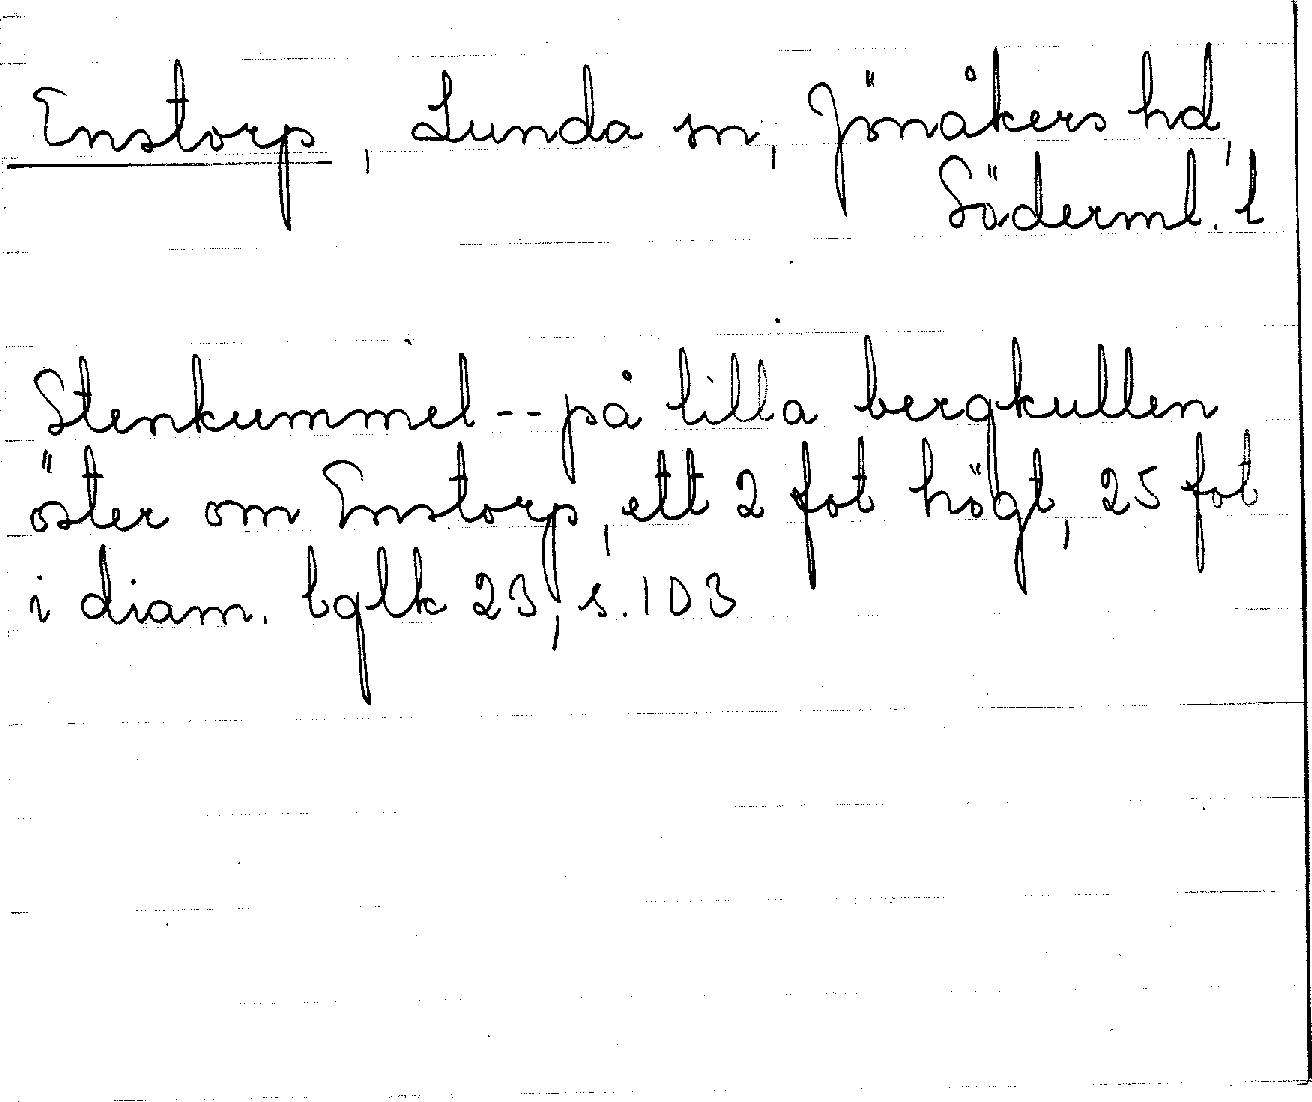 Enstorp, Lunda sn, Jönåkers hd,
Söderml. l
Stenkummel -- på lilla bergkullen
öster om Enstorp, ett 2 fot högt, 25 fot
i diam. bglk 23, s. 103